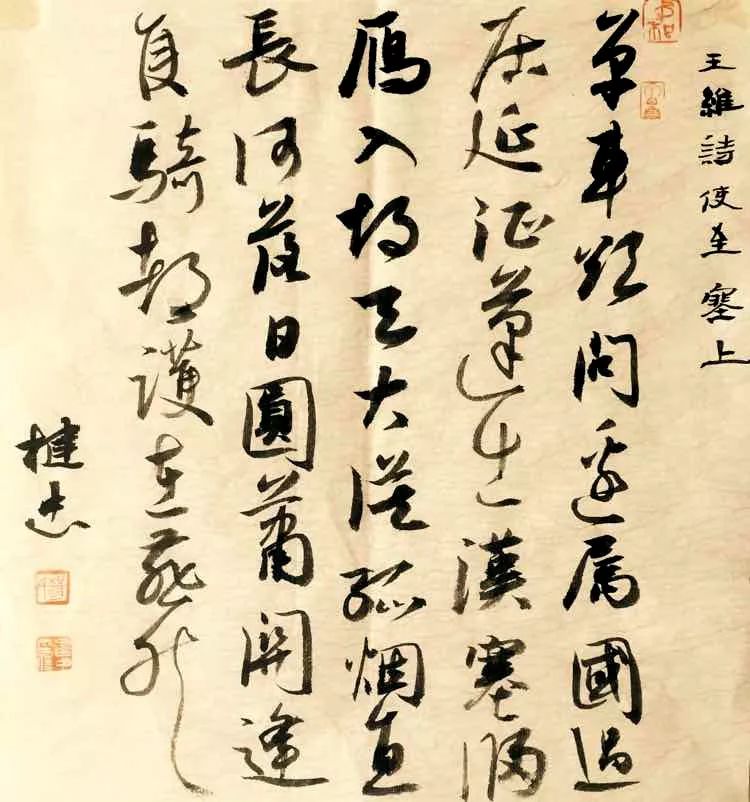 王維詩使至塞上
單車欲問邊屬國過
居延征蓬出漢塞歸
雁入胡天大漠孤烟直
長河落日圓蕭關逢
候騎都護在燕然
楗忠